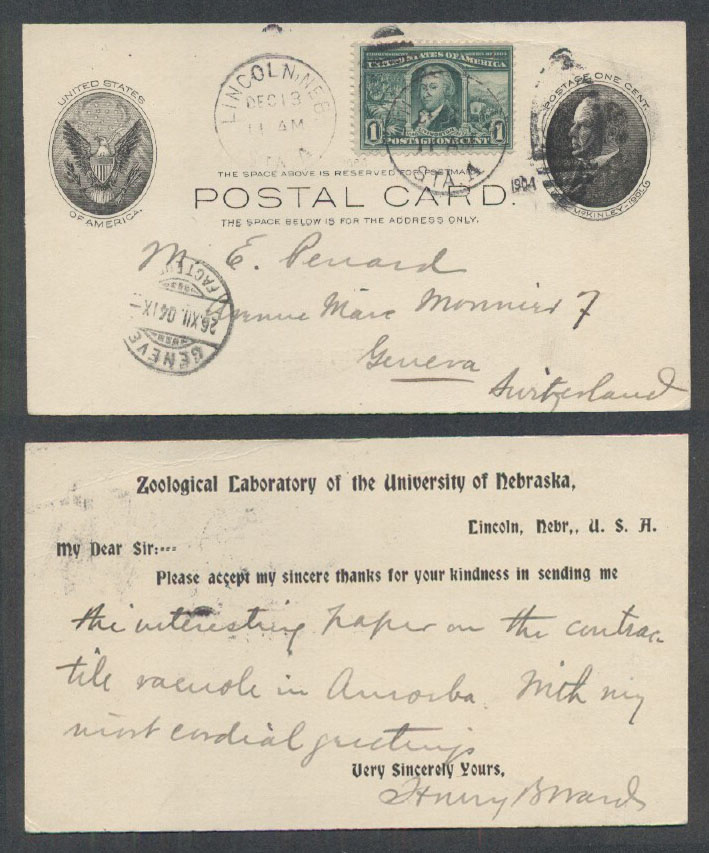 UNITED STATES
OF AMERICA.
LINCOLN, NEB.
DEC 13
11 AM
STA. A
UNITED STATES OF AMERICA
1 1
POSTAGE ONE CENT
STA. A
1904
POSTAGE ONE CENT.
McKINLEY-1901
THE SPACE ABOVE IS RESERVED FOR POSTMARK.
POSTAL CARD.
THE SPACE BELOW IS FOR THE ADDRESS ONLY.
M. E. Penard
Avenue Marc Monnier 7
Geneva
Switzerland
GENEVE
26.XII.04.IX-
FACTEURS
Zoological Laboratory of the University of Nebraska,
Lincoln, Nebr,, U. S. A.
My Dear Sir:---
Please accept my sincere thanks for your kindness in sending me
the interesting paper on the contrac-
tile vacuole in Amoeba. With my
most cordial greetings
Very Sincerely Yours,
Henry B Ward